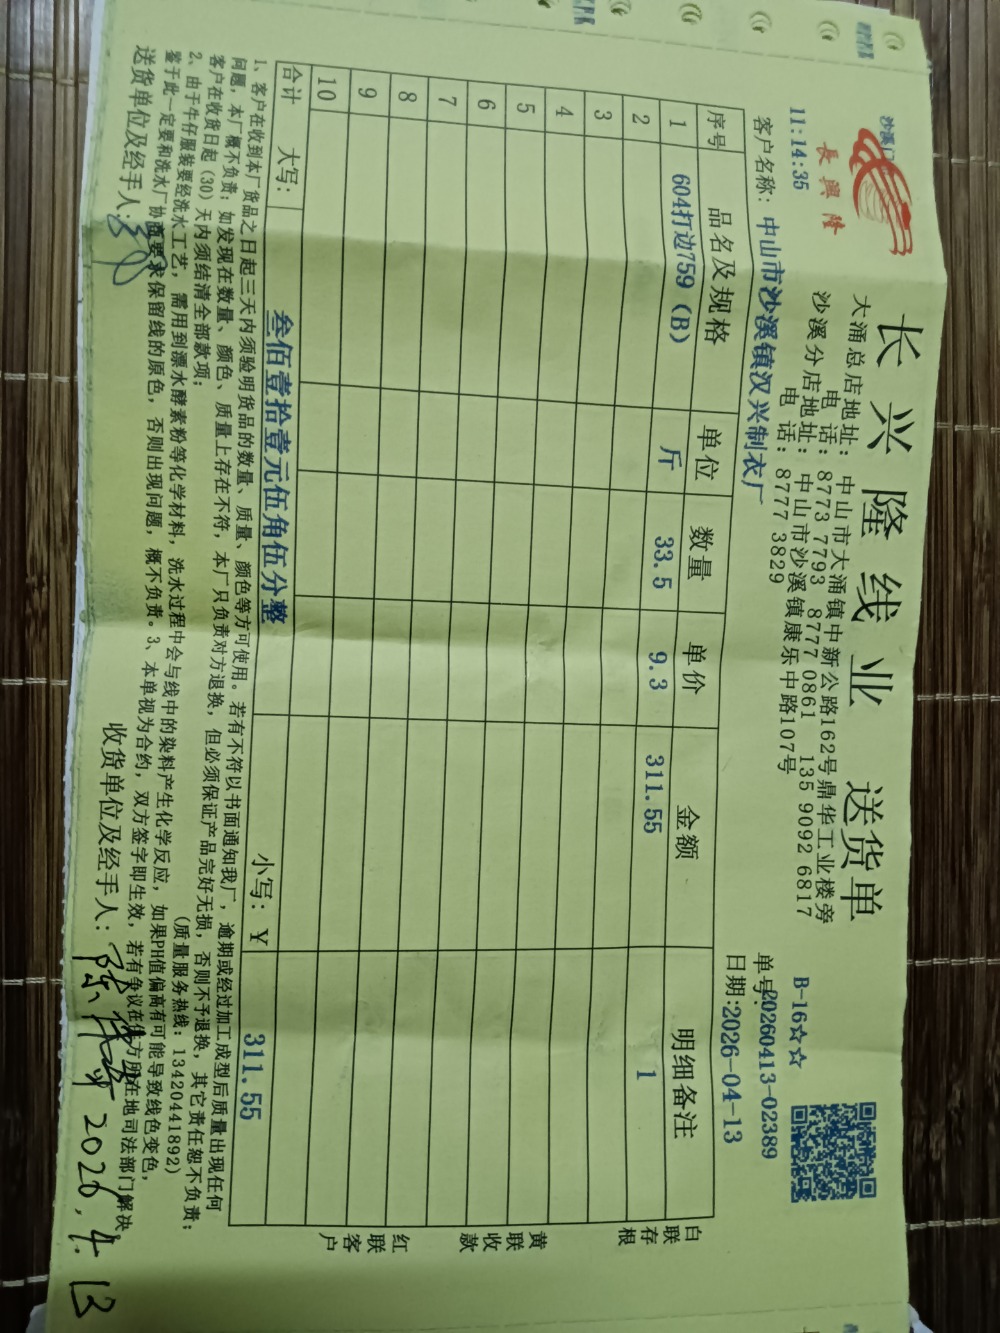 沙溪门
長興隆
长兴隆线业 送货单
大涌总店地址：中山市大涌镇中新公路162号鼎华工业楼旁
电 话：8773 7793 8777 0861 135 9092 6817
沙溪分店地址：中山市沙溪镇康乐中路107号
电 话：8777 3829
B-16☆☆
11:14:35
单号:20260413-02389
客户名称：中山市沙溪镇汉兴制衣厂
日期:2026-04-13
序号 品名及规格 单位 数量 单价 金额 明细备注
1 604打边759（B） 斤 33.5 9.3 311.55 1
2
3
4
5
6
7
8
9
10
合计 大写： 叁佰壹拾壹元伍角伍分整 小写：￥ 311.55
白联存根
黄联收款
红联客户
1、客户在收到本厂货品之日起三天内须验明货品的数量、质量、颜色等方可使用。若有不符以书面通知我厂，逾期或经过加工成型后质量出现任何
问题，本厂概不负责；如发现在数量、颜色、质量上存在不符，本厂只负责对方退换，但必须保证产品完好无损，否则不予退换，其它责任恕不负责；
客户在收货日起（30）天内须结清全部款项； （质量服务热线：13420441892）
2、由于牛仔服装要经洗水工艺，需用到漂水酵素粉等化学材料，洗水过程中会与线中的染料产生化学反应，如果PH值偏高有可能导致线色变色，
鉴于此一定要和洗水厂协商要求保留线的原色，否则出现问题，概不负责。3、本单视为合约，双方签字即生效，若有争议在供方所在地司法部门解决。
送货单位及经手人:
收货单位及经手人：
2026.4.13